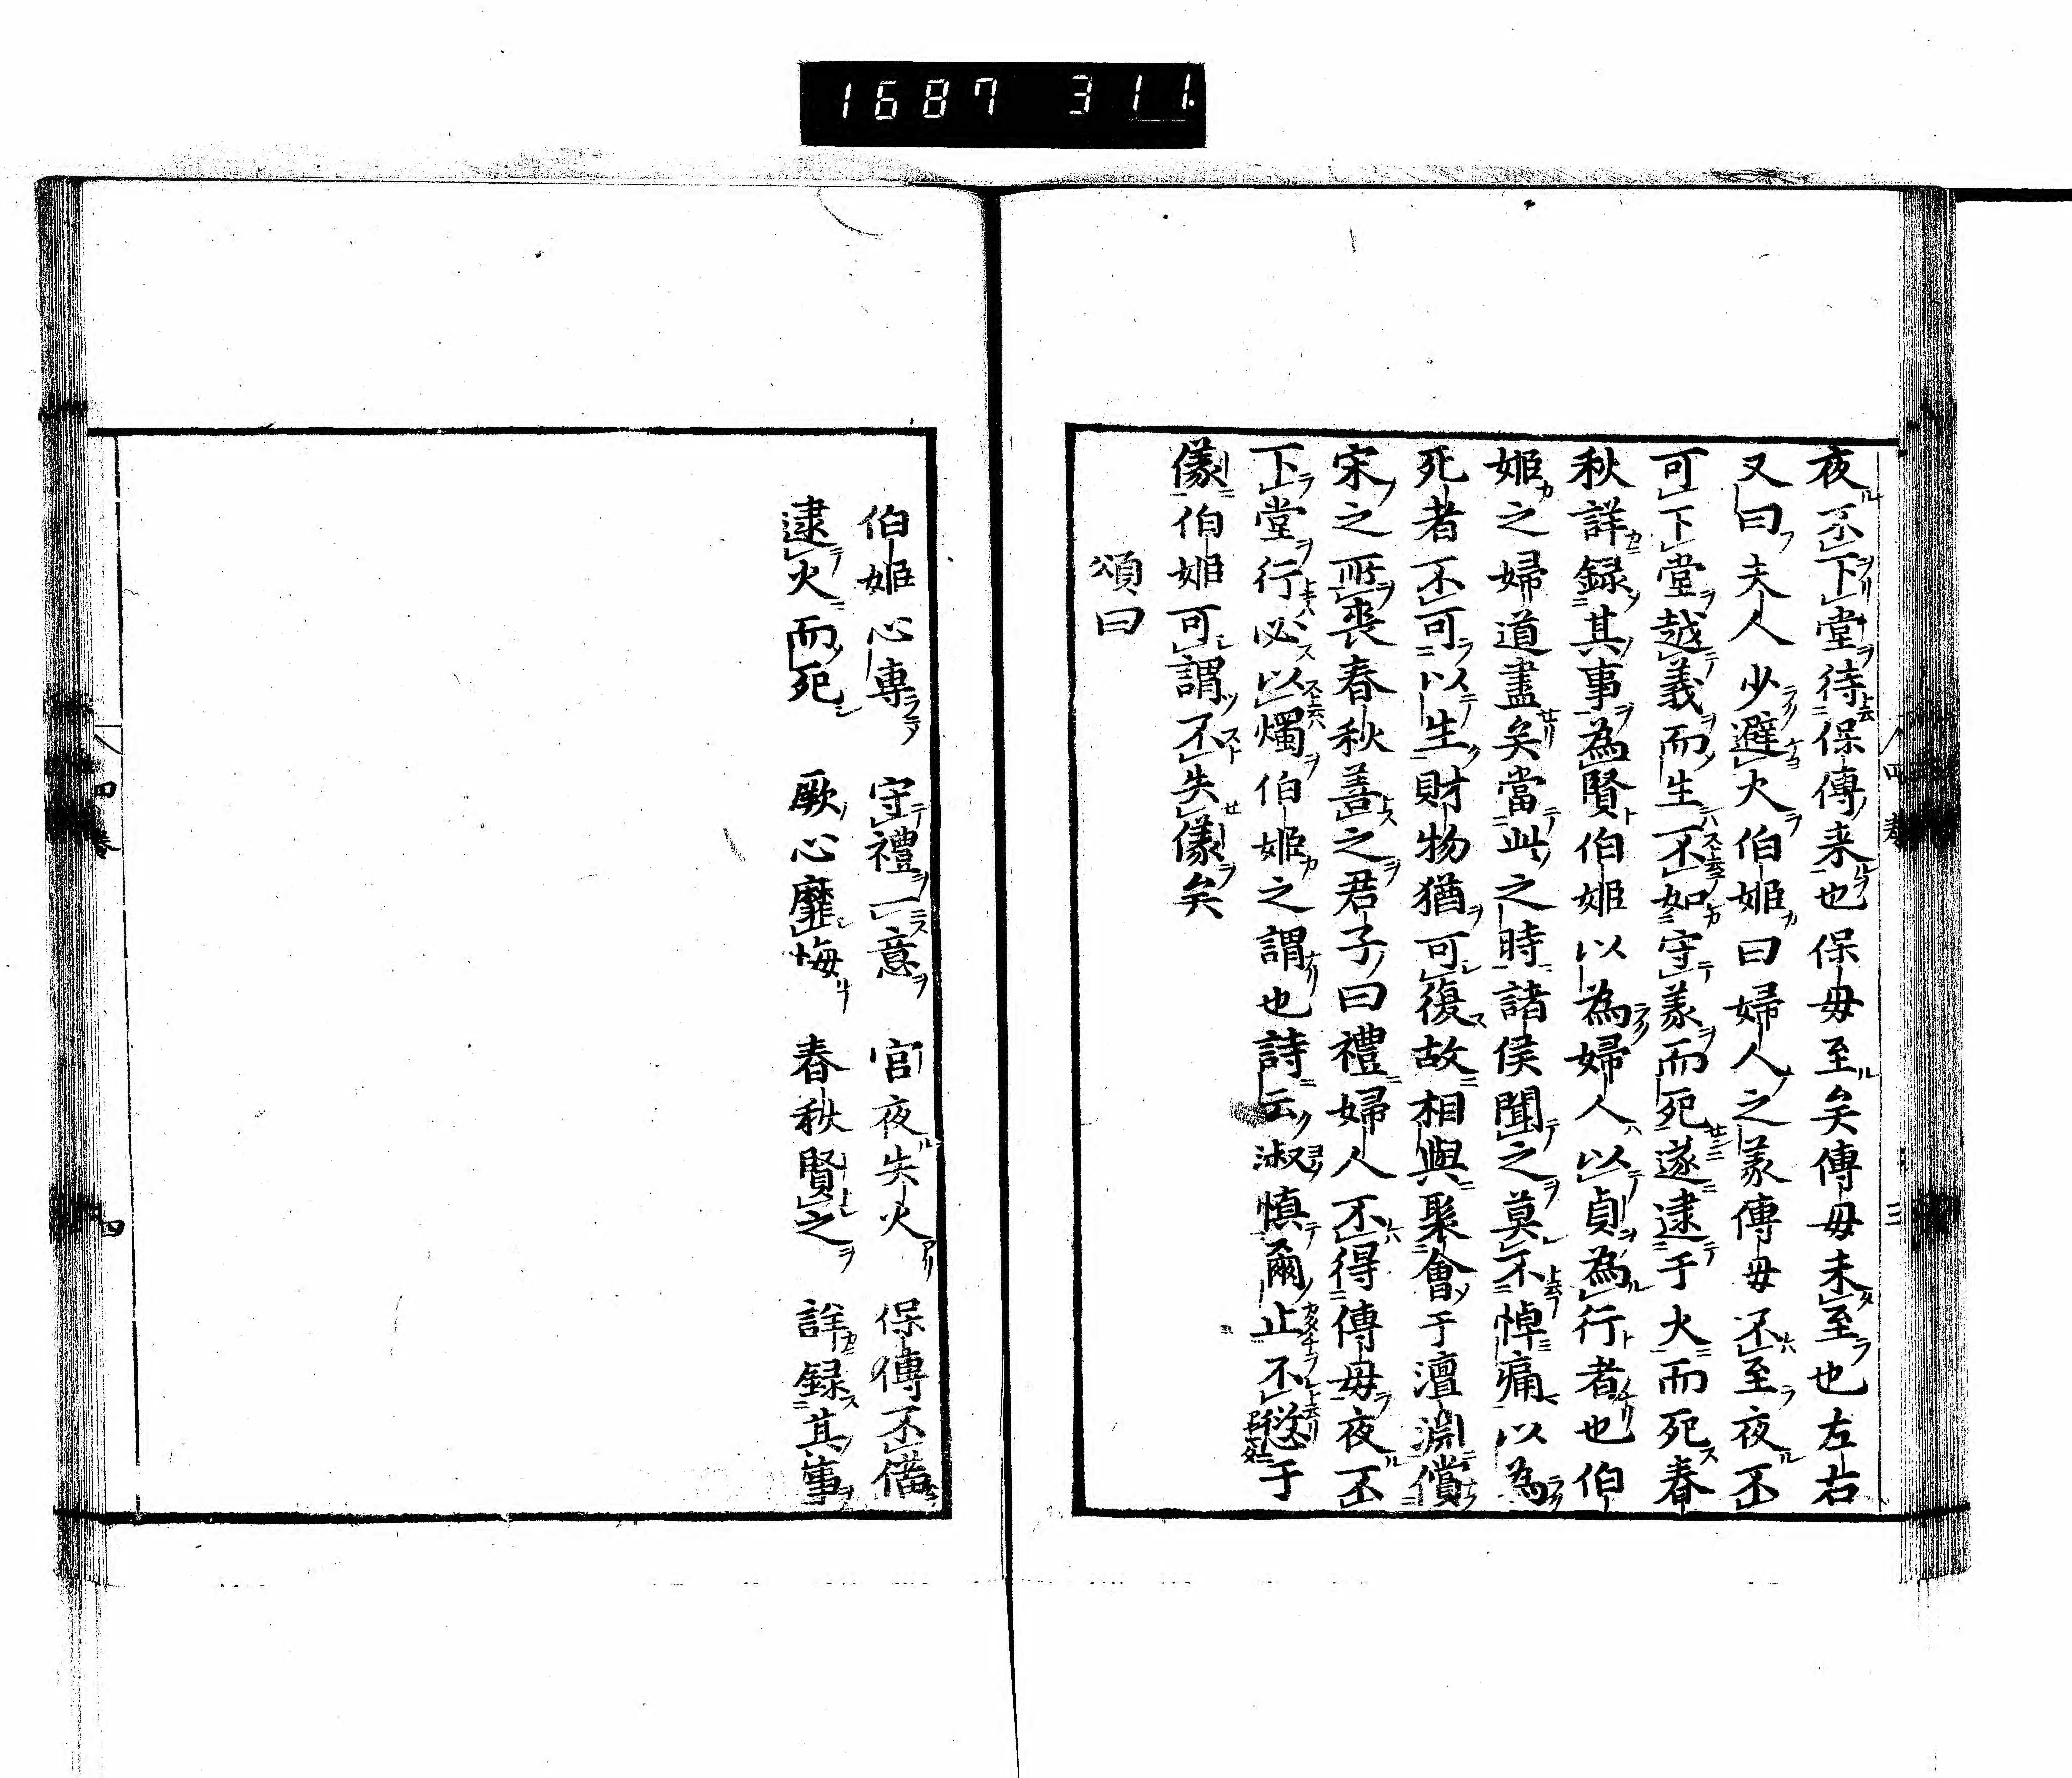 1687 311.
夜不下堂待保傅来也保母至矣傅母未至也左右
又曰夫人少避火伯姬曰婦人之義傅母不至夜不
可下堂越義而生不如守義而死遂逮于火而死春
秋詳録其事為賢伯姬以為婦人以貞為行者也伯
姬之婦道盡矣當此之時諸侯聞之莫不悼痛以為
死者不可以生財物猶可復故相與聚會于澶淵償
宋之所喪春秋善之君子曰禮婦人不得傅母夜不
下堂行必以燭伯姬之謂也詩云淑慎爾止不愆于
儀伯姬可謂不失儀矣
頌曰
伯姬心専 守禮一意 宮夜失火 保傅不備
逮火而死 厥心靡悔 春秋賢之 詳録其事